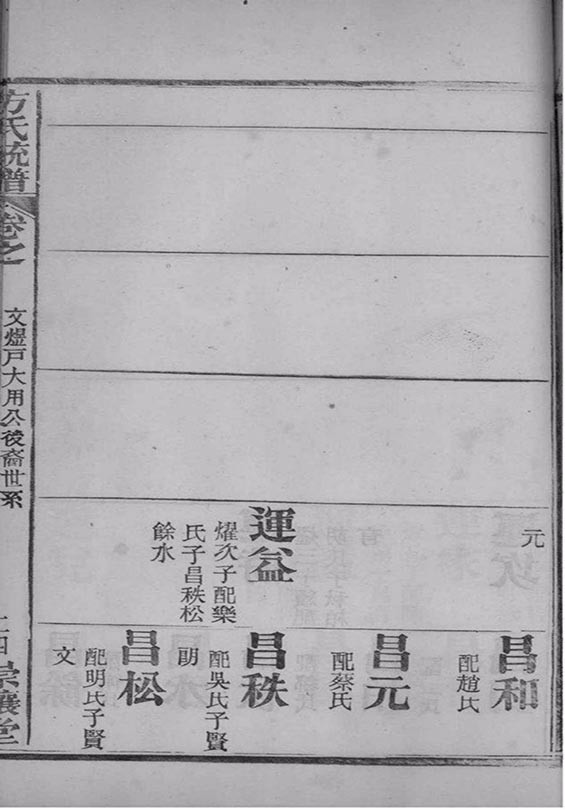 元
運益
燿次子配樂
氏子昌秩松
餘水
昌和
配趙氏
昌元
配蔡氏
昌秩
配吳氏子賢
明
昌松
配明氏子賢
文
方氏統譜
卷之一
文燿戶大用公後裔世系
崇讓堂